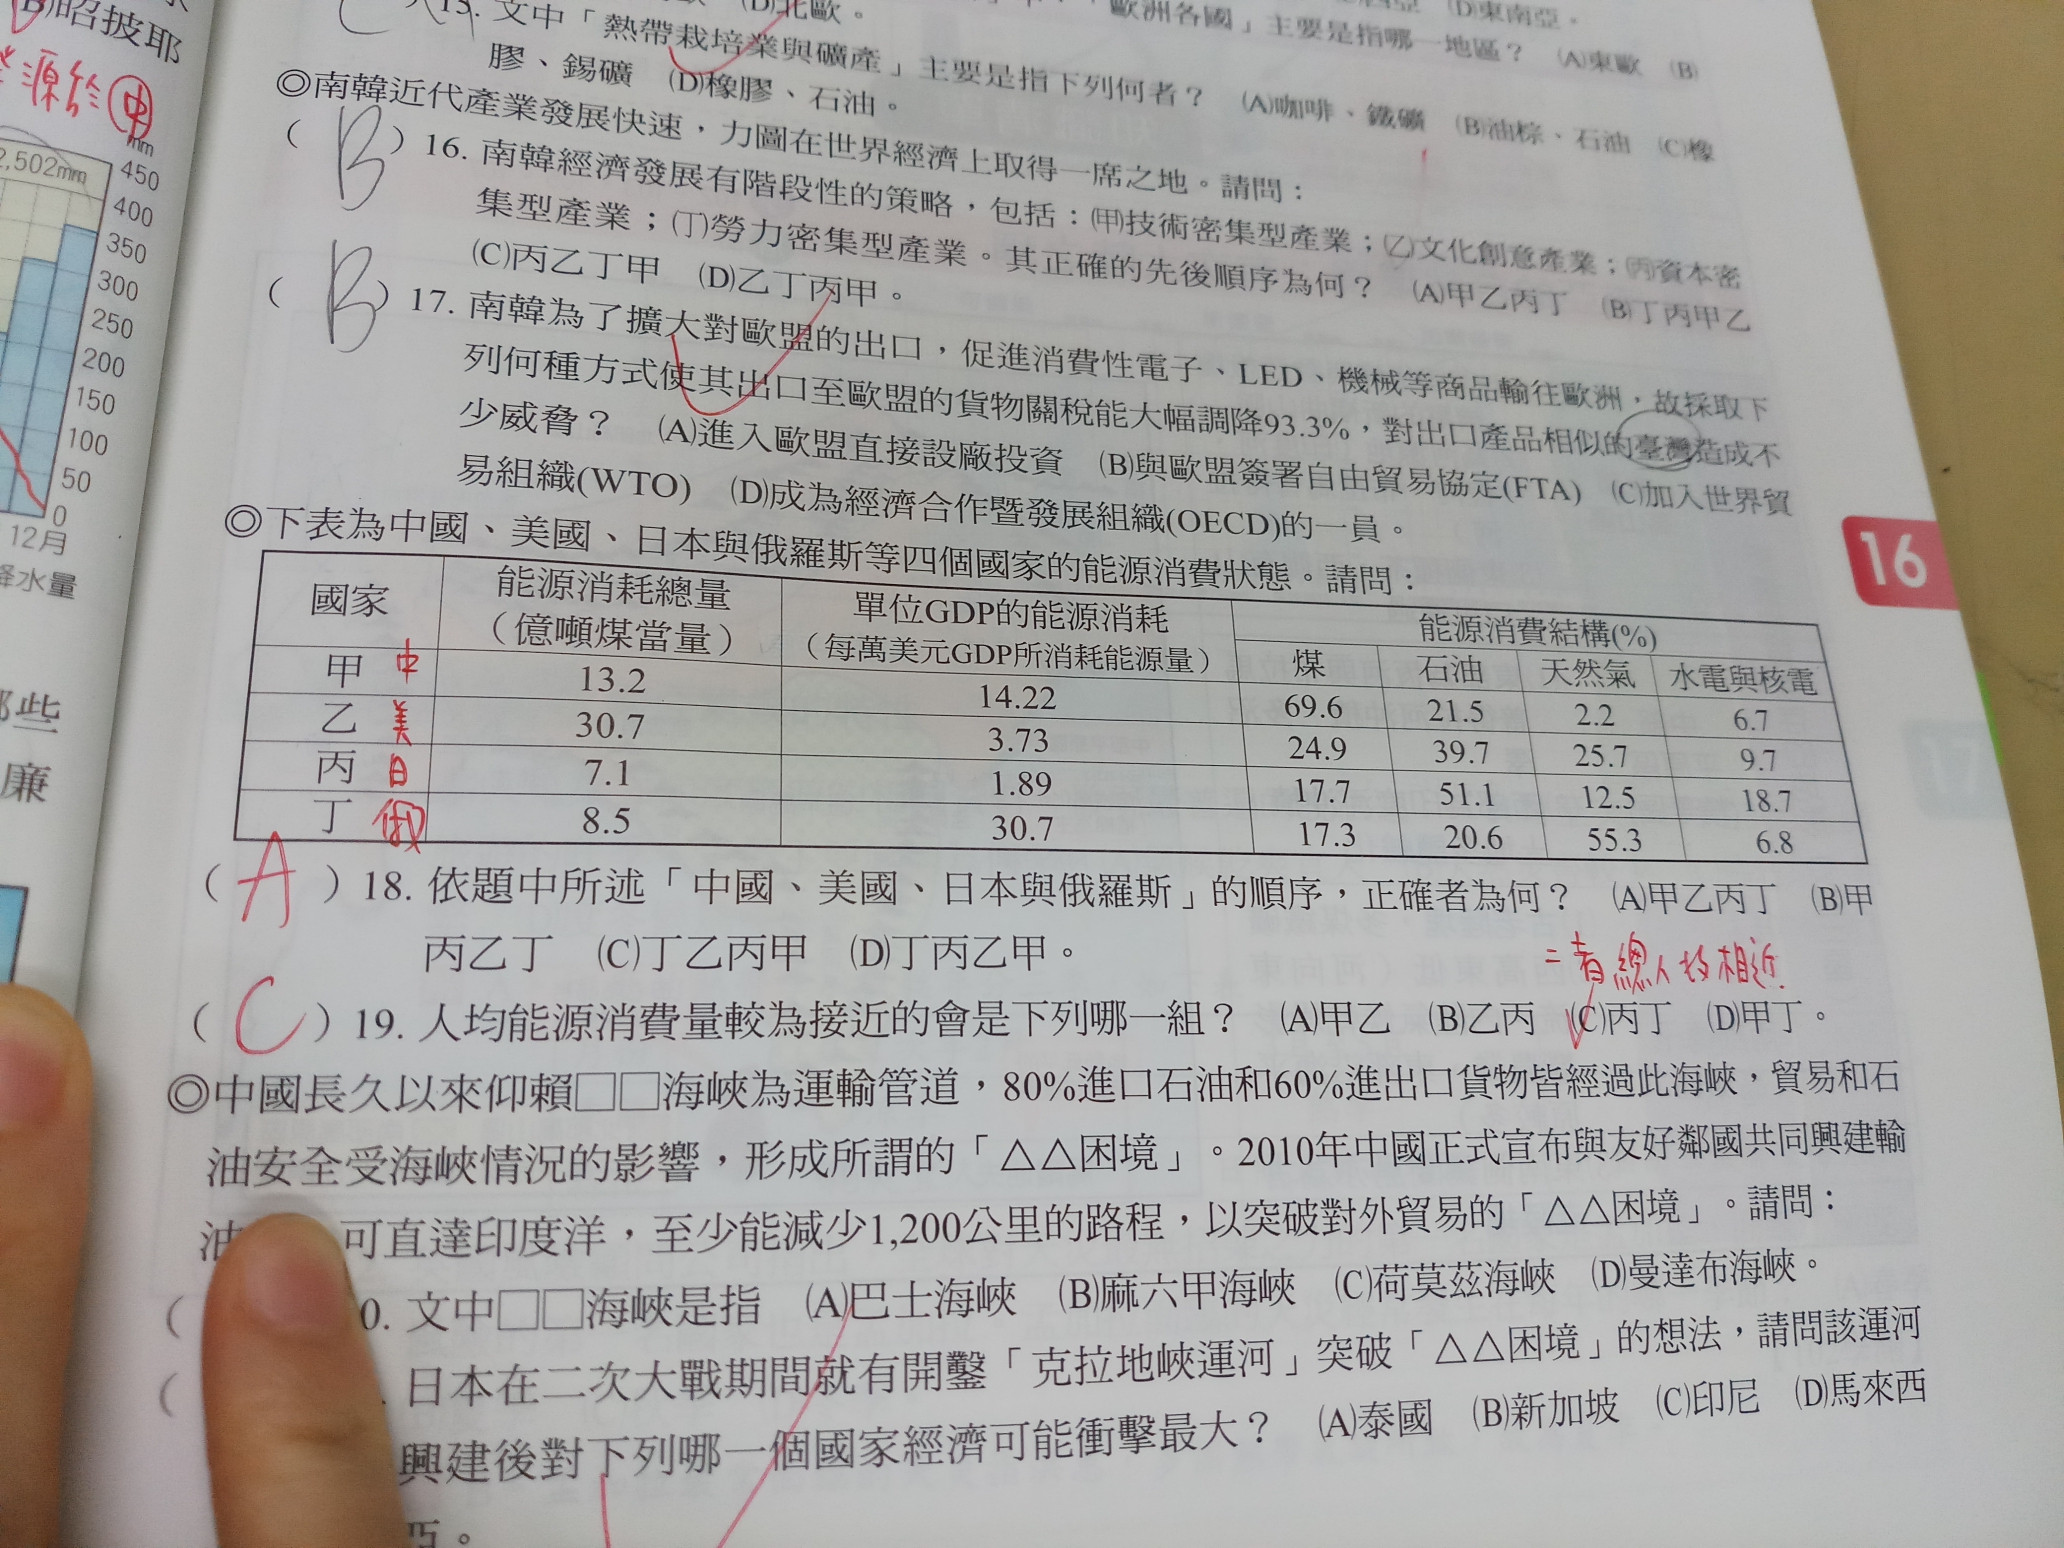 B)昭披耶
發源於中
(D)北歐。
「歐洲各國」主要是指哪一地區? (A)東歐 (B)
(D)東南亞。
C
15. 文中「熱帶栽培業與礦產」主要是指下列何者? (A)咖啡、鐵礦 (B)油棕、石油 (C)橡
膠、錫礦 (D)橡膠、石油。
◎南韓近代產業發展快速,力圖在世界經濟上取得一席之地。請問:
( B ) 16. 南韓經濟發展有階段性的策略,包括:(甲)技術密集型產業;(乙)文化創意產業;(丙)資本密
集型產業;(丁)勞力密集型產業。其正確的先後順序為何? (A)甲乙丙丁 (B)丁丙甲乙
(C)丙乙丁甲 (D)乙丁丙甲。
( B ) 17. 南韓為了擴大對歐盟的出口,促進消費性電子、LED、機械等商品輸往歐洲,故採取下
列何種方式使其出口至歐盟的貨物關稅能大幅調降93.3%,對出口產品相似的臺灣造成不
少威脅? (A)進入歐盟直接設廠投資 (B)與歐盟簽署自由貿易協定(FTA) (C)加入世界貿
易組織(WTO) (D)成為經濟合作暨發展組織(OECD)的一員。
◎下表為中國、美國、日本與俄羅斯等四個國家的能源消費狀態。請問:
國家 能源消耗總量(億噸煤當量) 單位GDP的能源消耗(每萬美元GDP所消耗能源量) 能源消費結構(%)
煤 石油 天然氣 水電與核電
甲 中 13.2 14.22 69.6 21.5 2.2 6.7
乙 美 30.7 3.73 24.9 39.7 25.7 9.7
丙 日 7.1 1.89 17.7 51.1 12.5 18.7
丁 俄 8.5 30.7 17.3 20.6 55.3 6.8
( A ) 18. 依題中所述「中國、美國、日本與俄羅斯」的順序,正確者為何? (A)甲乙丙丁 (B)甲
丙乙丁 (C)丁乙丙甲 (D)丁丙乙甲。
二者總人均相近
( C ) 19. 人均能源消費量較為接近的會是下列哪一組? (A)甲乙 (B)乙丙 (C)丙丁 (D)甲丁。
◎中國長久以來仰賴□□海峽為運輸管道,80%進口石油和60%進出口貨物皆經過此海峽,貿易和石
油安全受海峽情況的影響,形成所謂的「△△困境」。2010年中國正式宣布與友好鄰國共同興建輸
油 可直達印度洋,至少能減少1,200公里的路程,以突破對外貿易的「△△困境」。請問:
( 0. 文中□□海峽是指 (A)巴士海峽 (B)麻六甲海峽 (C)荷莫茲海峽 (D)曼達布海峽。
( . 日本在二次大戰期間就有開鑿「克拉地峽運河」突破「△△困境」的想法,請問該運河
興建後對下列哪一個國家經濟可能衝擊最大? (A)泰國 (B)新加坡 (C)印尼 (D)馬來西
亞。
16
17
mm
2,502mm
450
400
350
300
250
200
150
100
50
0
12月
降水量
哪些
廉